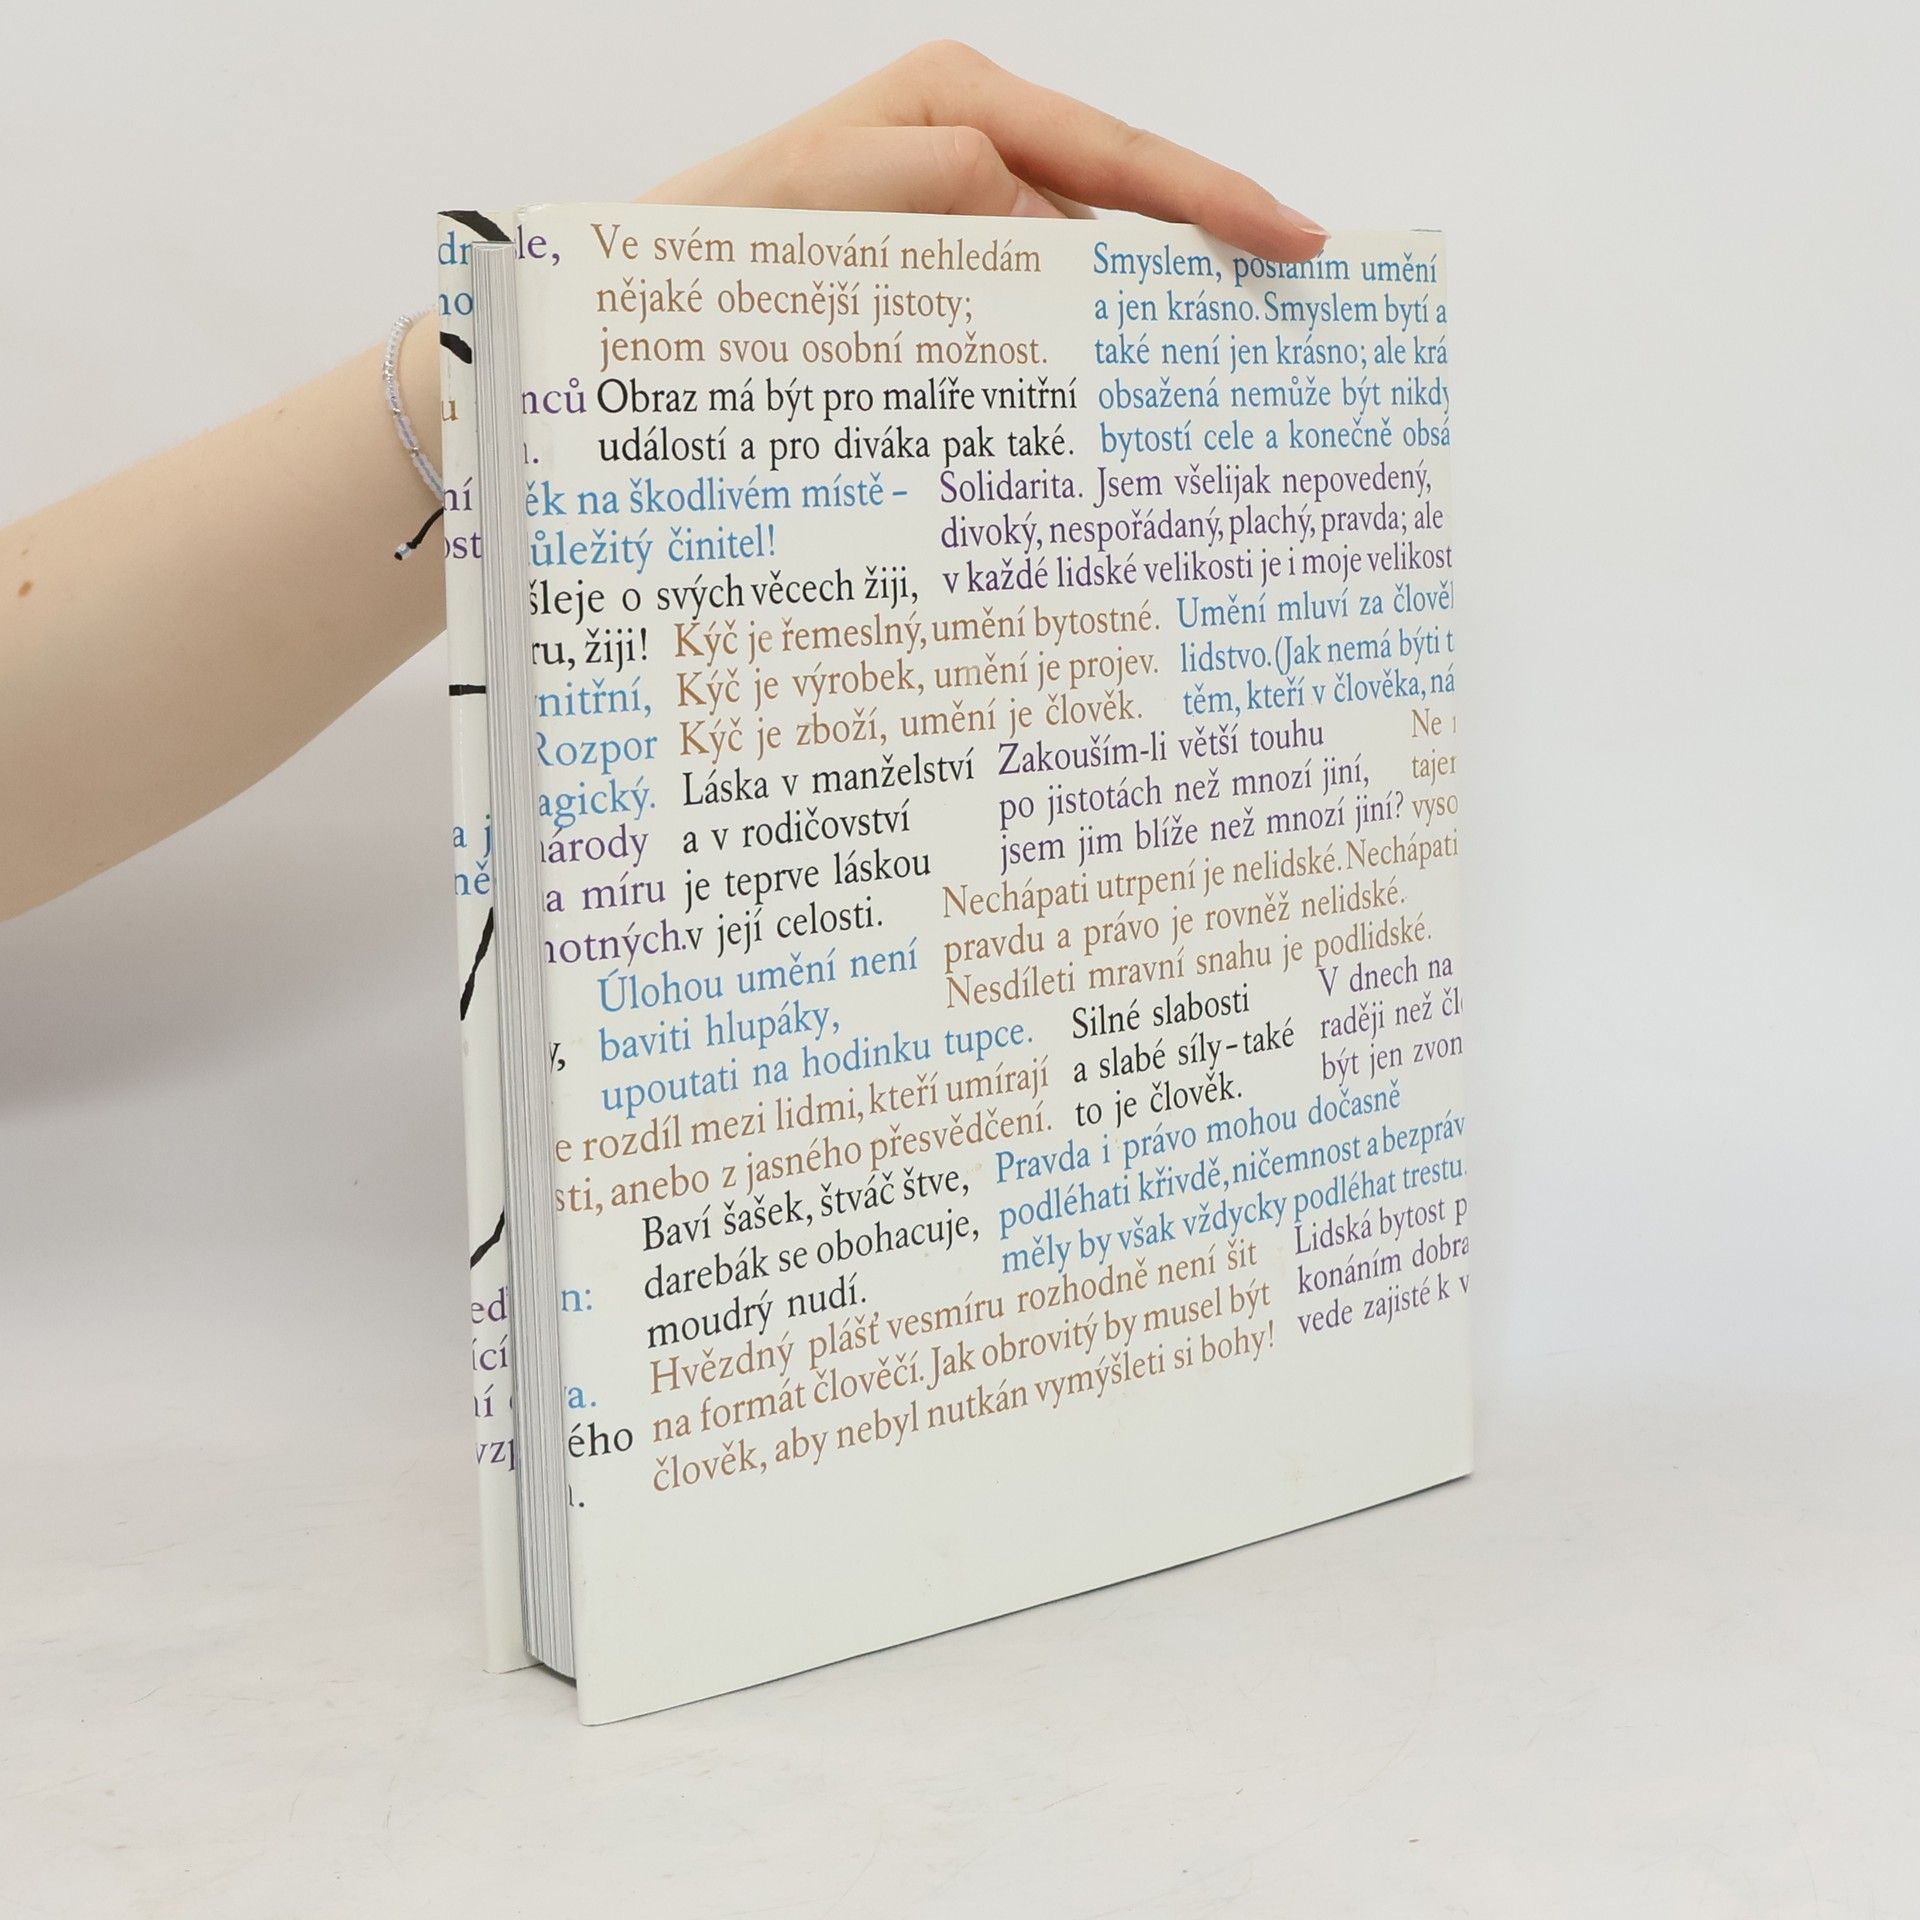 le,
Ve svém malování nehledám
nějaké obecnější jistoty;
jenom svou osobní možnost.
Smyslem, posláním umění
a jen krásno. Smyslem bytí a
také není jen krásno; ale krá
obsažená nemůže být nikdy
bytostí cele a konečně obsá
nců
Obraz má být pro malíře vnitřní
událostí a pro diváka pak také.
ěk na škodlivém místě –
ůležitý činitel!
Solidarita. Jsem všelijak nepovedený,
divoký, nespořádaný, plachý, pravda; ale
v každé lidské velikosti je i moje velikost
šleje o svých věcech žiji,
ru, žiji!
Kýč je řemeslný, umění bytostné.
Kýč je výrobek, umění je projev.
Kýč je zboží, umění je člověk.
Umění mluví za člově
lidstvo. (Jak nemá býti t
těm, kteří v člověka, ná
nitřní,
Rozpor
agický.
Láska v manželství
a v rodičovství
je teprve láskou
v její celosti.
Zakouším-li větší touhu
po jistotách než mnozí jiní,
jsem jim blíže než mnozí jiní?
Ne
tajer
vyso
národy
a míru
notných.
Nechápati utrpení je nelidské. Nechápati
pravdu a právo je rovněž nelidské.
Nesdíleti mravní snahu je podlidské.
Úlohou umění není
baviti hlupáky,
upoutati na hodinku tupce.
y,
Silné slabosti
a slabé síly – také
to je člověk.
V dnech na
raději než čl
být jen zvon
e rozdíl mezi lidmi, kteří umírají
sti, anebo z jasného přesvědčení.
Baví šašek, štváč štve,
darebák se obohacuje,
moudrý nudí.
Pravda i právo mohou dočasně
podléhati křivdě, ničemnost a bezpráv
měly by však vždycky podléhat trestu.
Lidská bytost p
konáním dobra
vede zajisté k v
n:
a.
ého
Hvězdný plášť vesmíru rozhodně není šit
na formát člověčí. Jak obrovitý by musel být
člověk, aby nebyl nutkán vymýšleti si bohy!